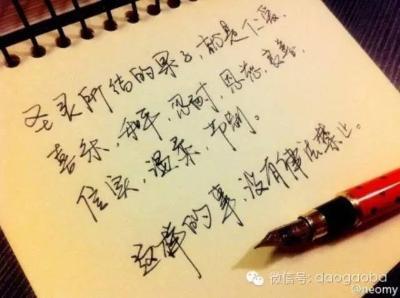 圣灵所结的果子，就是仁爱、
喜乐，和平，忍耐，恩慈，良善，
信实，温柔，节制。
这样的事，没有律法禁止。
微信号: daogaoba
@neomy